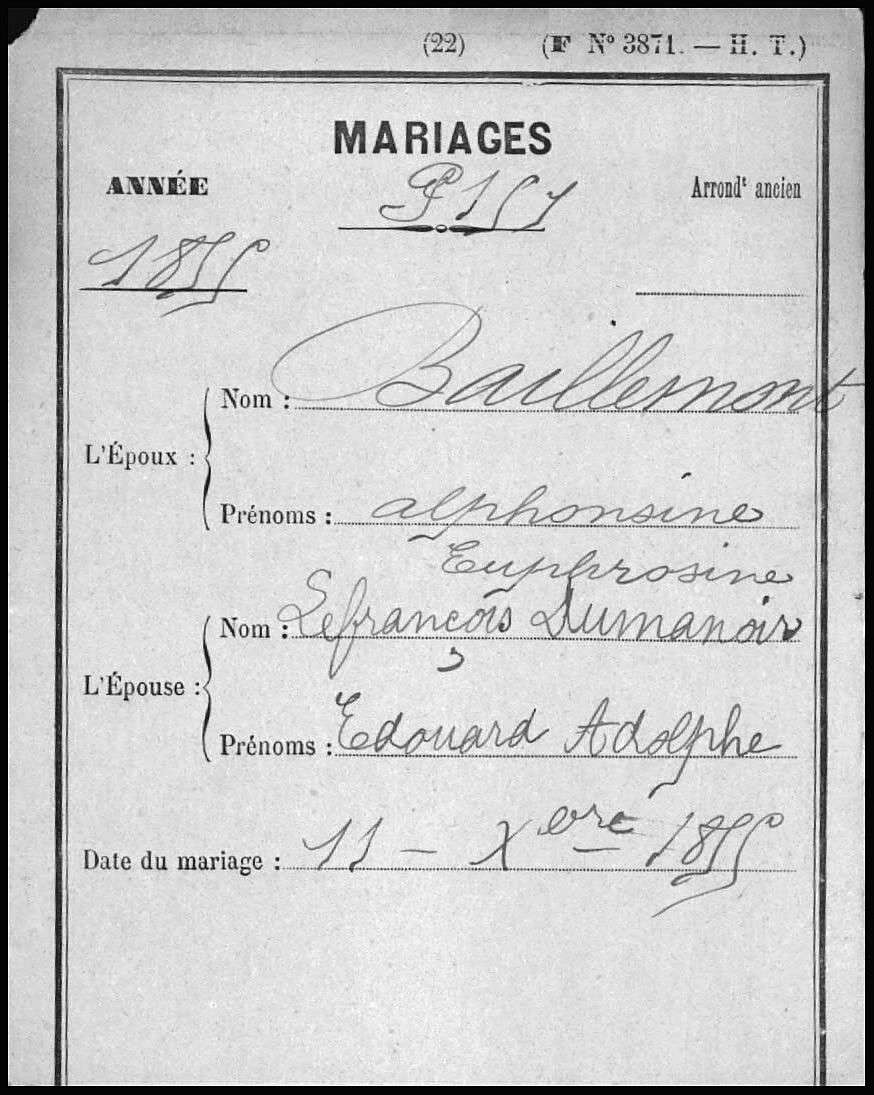 (22) (F Nº 3871. — H. T.)
MARIAGES
ANNÉE
Arrondt ancien
1855
L'Époux :
Nom : Baillemont
Prénoms : alphonsine
Euphrosine
L'Épouse :
Nom : Lefrancois Dumanoir
Prénoms : Edouard Adolphe
Date du mariage : 11 - Xbre 1855